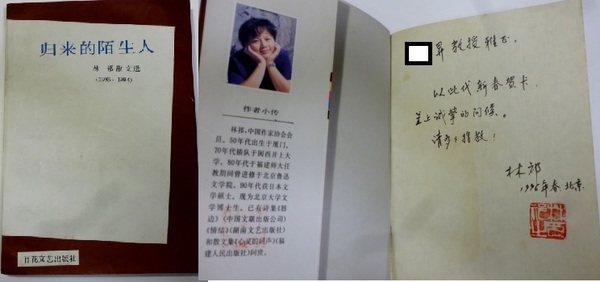 归来的陌生人
林祁散文选
百花文艺出版社
作者小传
林祁,中国作家协会会
员。50年代出生于厦门,
70年代插队于闽西并上大
学。80年代于福建师大任
教期间曾进修于北京鲁迅
文学院。90年代获日本文
学硕士。现为北京大学文
学博士生。已有诗集《唇
边》(中国文联出版公司)
《情结》(湖南文艺出版社)
和散文集《心灵的回声》(福
建人民出版社)问世。
昇教授雅正,
以此代新春贺卡,
呈上诚挚的问候。
请多多指教!
林祁
1996年春 北京